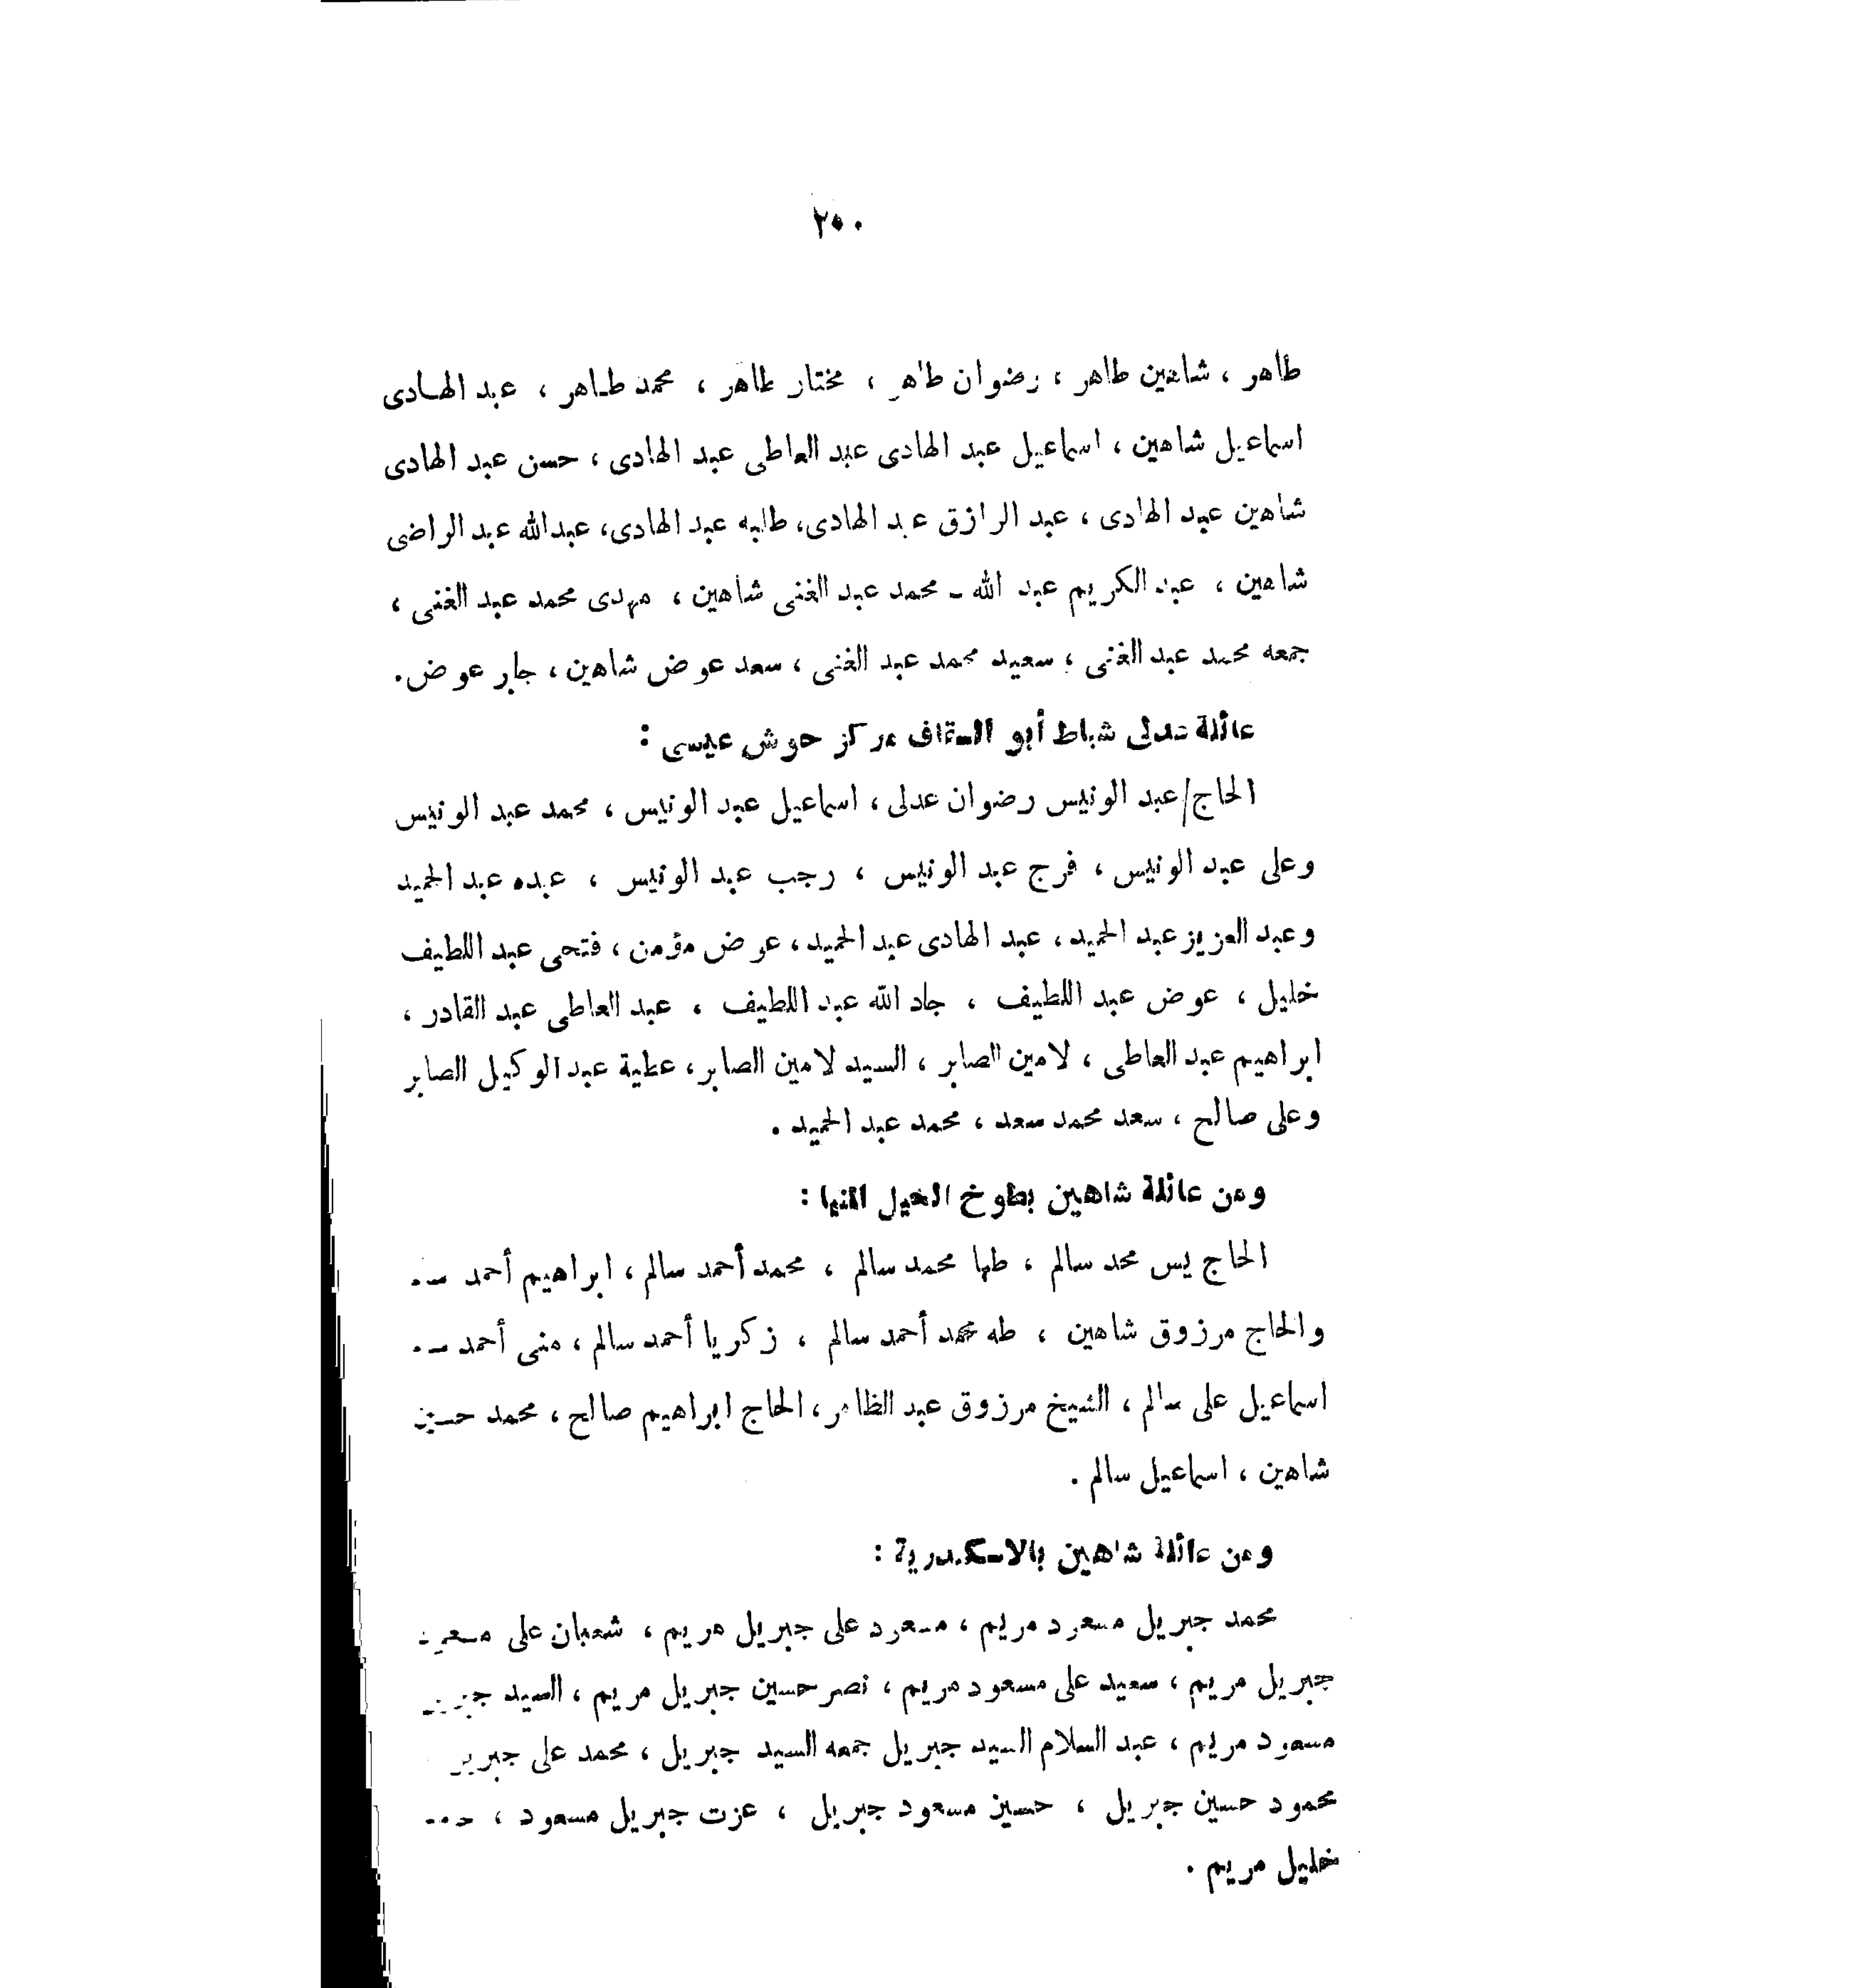 ٢٥٠
طاهر ، شاهين طاهر ، رضوان طاهر ، مختار طاهر ، محمد طاهر ، عبد الهادى
اسماعيل شاهين ، اسماعيل عبد الهادى عبد العاطى عبد الهادى ، حسن عبد الهادى
شاهين عبد الهادى ، عبد الرازق عبد الهادى، طالبه عبد الهادى، عبدالله عبد الراضى
شاهين ، عبد الكريم عبد الله - محمد عبد الغنى شاهين ، مهدى محمد عبد الغنى ،
جمعه محمد عبد الغنى ، سعيد محمد عبد الغنى ، سعد عوض شاهين ، جابر عوض.
عائلة عدلى شباط أبو السقاف مركز حوش عيسى :
الحاج/عبد الونيس رضوان عدلى ، اسماعيل عبد الونيس ، محمد عبد الونيس
وعلى عبد الونيس ، فرج عبد الونيس ، رجب عبد الونيس ، عبده عبد الحميد
وعبد العزيز عبد الحميد ، عبد الهادى عبد الحميد ، عوض مؤمن ، فتحى عبد اللطيف
خليل ، عوض عبد اللطيف ، جاد الله عبد اللطيف ، عبد العاطى عبد القادر ،
ابراهيم عبد العاطى ، لامين الصابر ، السيد لامين الصابر ، عطية عبد الوكيل الصابر
وعلى صالح ، سعد محمد سعد ، محمد عبد الحميد .
ومن عائلة شاهين بطوخ الخيل المنيا :
الحاج يس محمد سالم ، طها محمد سالم ، محمد أحمد سالم ، ابراهيم أحمد
والحاج مرزوق شاهين ، طه محمد أحمد سالم ، زكريا أحمد سالم ، منى أحمد
اسماعيل على سالم ، الشيخ مرزوق عبد الظاهر ، الحاج ابراهيم صالح ، محمد حسين
شاهين ، اسماعيل سالم .
ومن عائلة شاهين بالاسكندرية :
محمد جبريل مسعود مريم ، مسعود على جبريل مريم ، شعبان على مسعود
جبريل مريم ، سعيد على مسعود مريم ، نصر حسين جبريل مريم ، السيد
مسعود مريم ، عبد السلام السيد جبريل جمعه السيد جبريل ، محمد على جبريل
محمود حسين جبريل ، حسين مسعود جبريل ، عزت جبريل مسعود ،
خليل مريم .